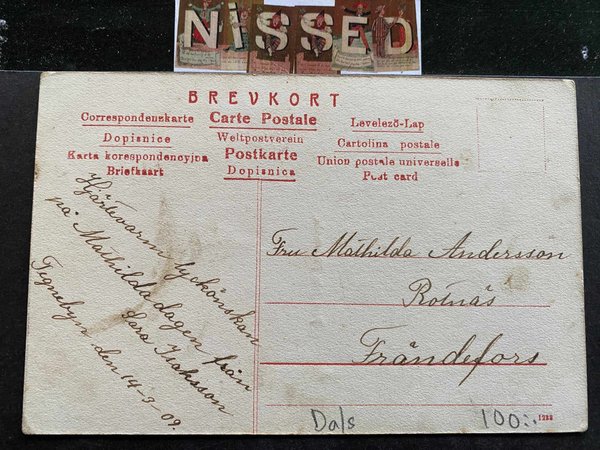 NiSSED
BREVKORT
Correspondenzkarte Carte Postale Levelező-Lap
Dopisnice Weltpostverein Cartolina postale
Karta korespondencyjna Postkarte Union postale universelle
Briefkaart Dopisnica Post card
Hjärtevarm lyckönskan
på Mathilda dagen från
Sara Isaksson
Tegnebyn den 14-3-09.
Fru Mathilda Andersson
Rotnäs
Frändefors
Dals
100:-
1288